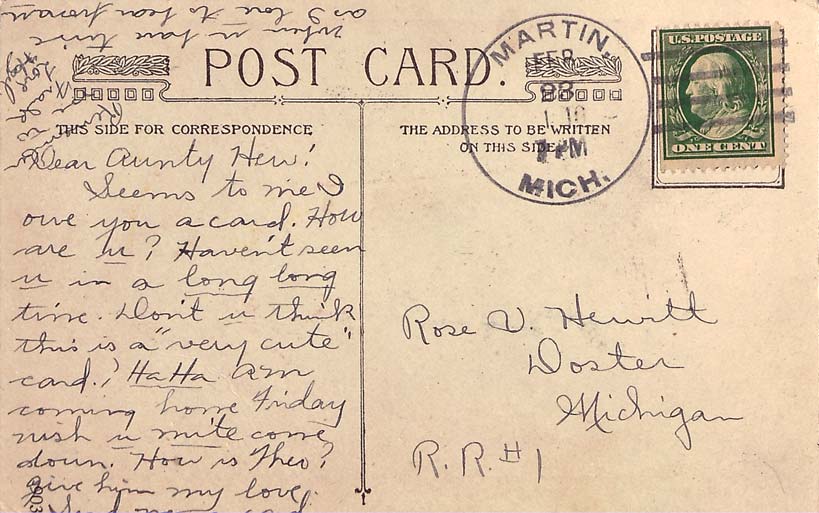 POST CARD.
THIS SIDE FOR CORRESPONDENCE
THE ADDRESS TO BE WRITTEN
ON THIS SIDE
MARTIN,
FEB
23
1 PM
MICH.
U.S. POSTAGE
ONE CENT
Dear Aunty Hew!
Seems to me I
owe you a card. How
are u? Haven't seen
u in a long long
time. Don't u think
this is a "very cute"
card? Ha Ha Am
coming home Friday
wish u mite come
down. How is Theo?
Give him my love.
Send me a card
when u have time
as I love to hear from
Love
Rose V. Hewitt
Doster
Michigan
R. R. #1